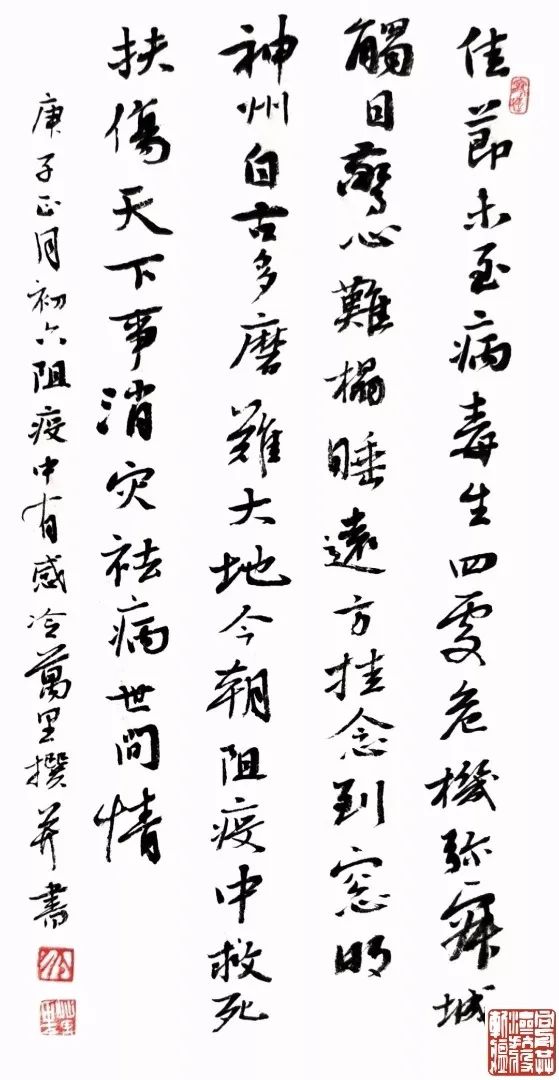 佳節未至病毒生四處危機弥城
觸目驚心難榻睡遠方挂念到窓明
神州自古多磨難大地今朝阻疫中救死
扶傷天下事消灾祛病世間情
庚子正月初六阻疫中有感冷萬里撰并書